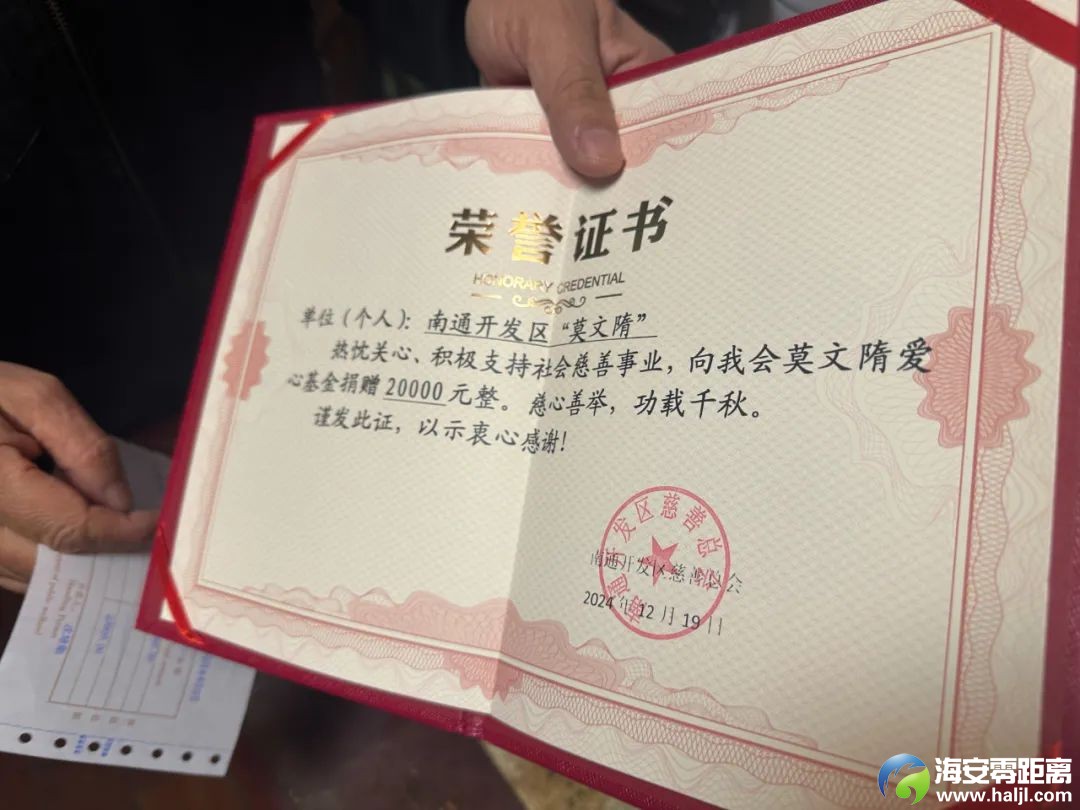 荣誉证书
HONORARY CREDENTIAL
单位（个人）：南通开发区“莫文隋”
热忱关心、积极支持社会慈善事业，向我会莫文隋爱
心基金捐赠20000元整。慈心善举，功载千秋。
谨发此证，以示衷心感谢！
南通开发区慈善总会
南通开发区慈善总会
2024年12月19日
海安零距离
www.haljl.com